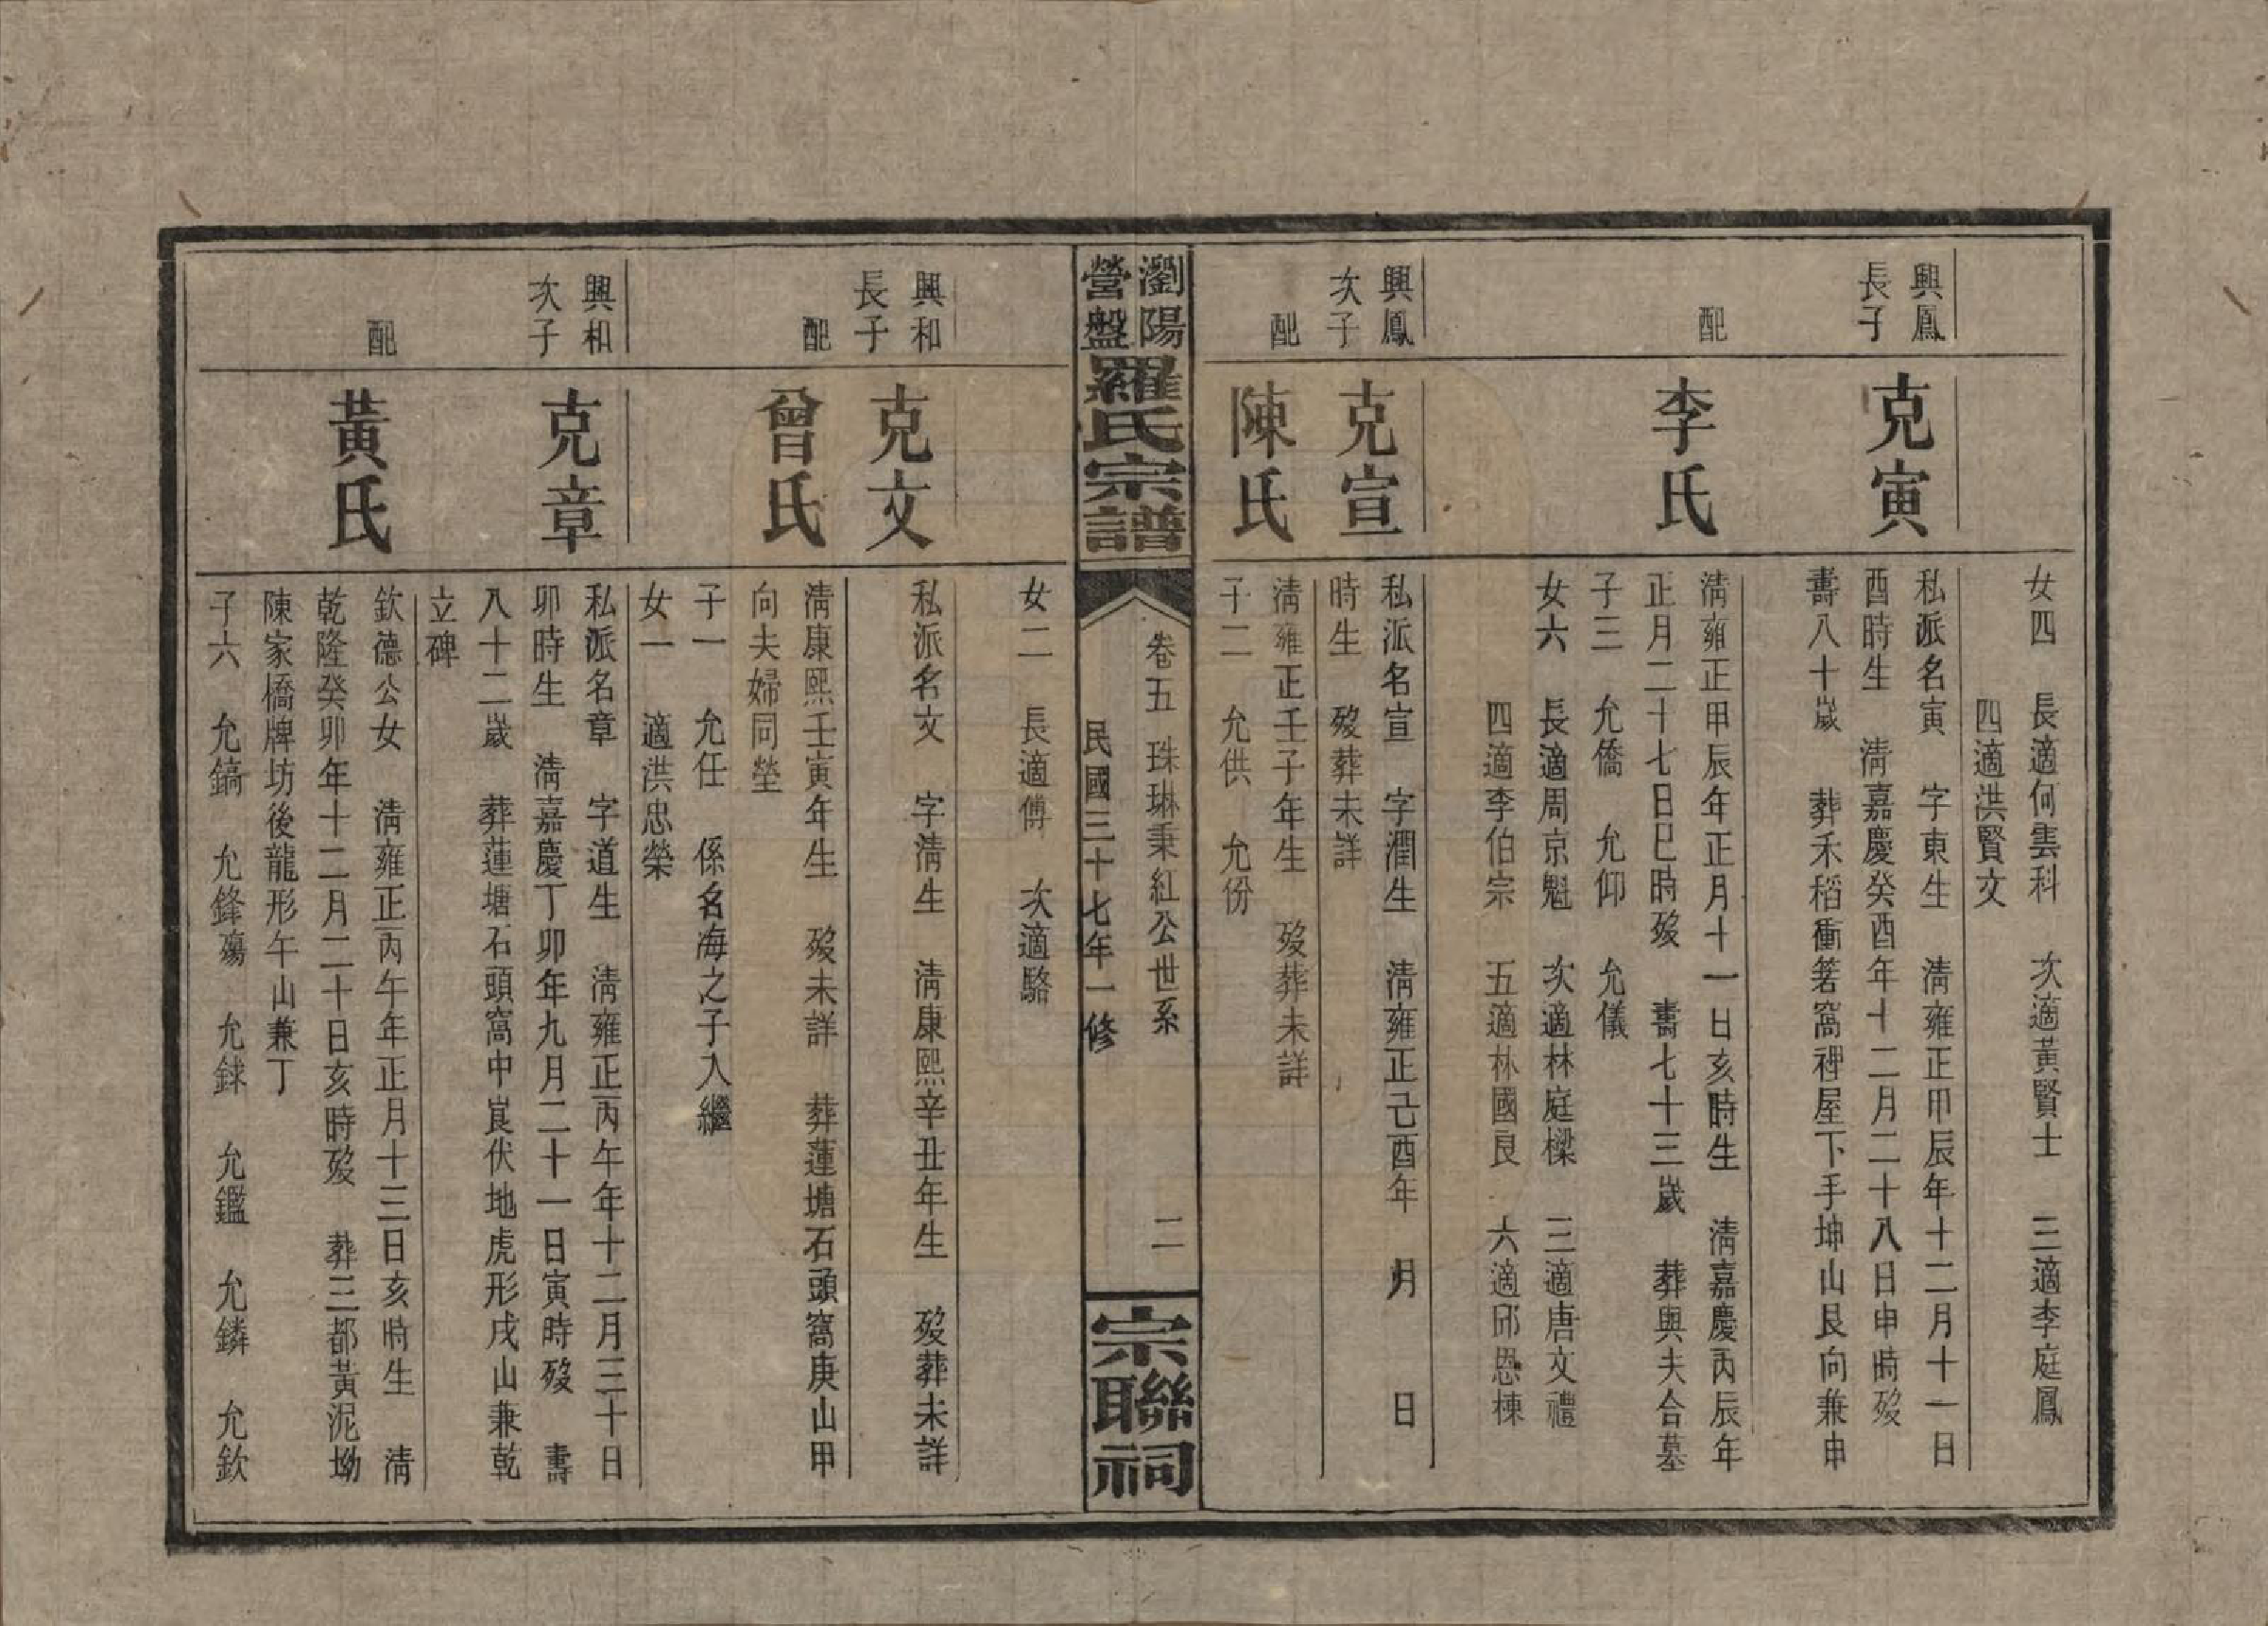 女四 長適何雲科 次適黃賢士 三適李庭鳳
四適洪賢文
興鳳
長子
克寅
私派名寅 字東生 清雍正甲辰年十二月十一日
酉時生 清嘉慶癸酉年十二月二十八日申時歿
壽八十歲 葬禾稻衝箬窩裡屋下手坤山艮向兼申
配
李氏
清雍正甲辰年正月十一日亥時生 清嘉慶丙辰年
正月二十七日巳時歿 壽七十三歲 葬與夫合墓
子三 允僑 允仰 允儀
女六 長適周京魁 次適林庭樑 三適唐文禮
四適李伯宗 五適林國良 六適邱恩棟
興鳳
次子
克宣
私派名宣 字潤生 清雍正己酉年 月 日
時生 歿葬未詳
配
陳氏
清雍正壬子年生 歿葬未詳
子二 允供 允份
瀏陽
營盤
羅氏宗譜
卷五 珠琳秉紅公世系 二
民國三十七年一修
宗聯祠
女二 長適傅 次適駱
興和
長子
克文
私派名文 字清生 清康熙辛丑年生 歿葬未詳
配
曾氏
清康熙壬寅年生 歿未詳 葬蓮塘石頭窩庚山甲
向夫婦同塋
子一 允任 係名海之子入繼
女一 適洪忠榮
興和
次子
克章
私派名章 字道生 清雍正丙午年十二月三十日
卯時生 清嘉慶丁卯年九月二十一日寅時歿 壽
八十二歲 葬蓮塘石頭窩中崀伏地虎形戌山兼乾
立碑
配
黃氏
欽德公女 清雍正丙午年正月十三日亥時生 清
乾隆癸卯年十二月二十日亥時歿 葬三都黃泥坳
陳家橋牌坊後龍形午山兼丁
子六 允鎬 允鋒殤 允銶 允鑑 允鏻 允欽